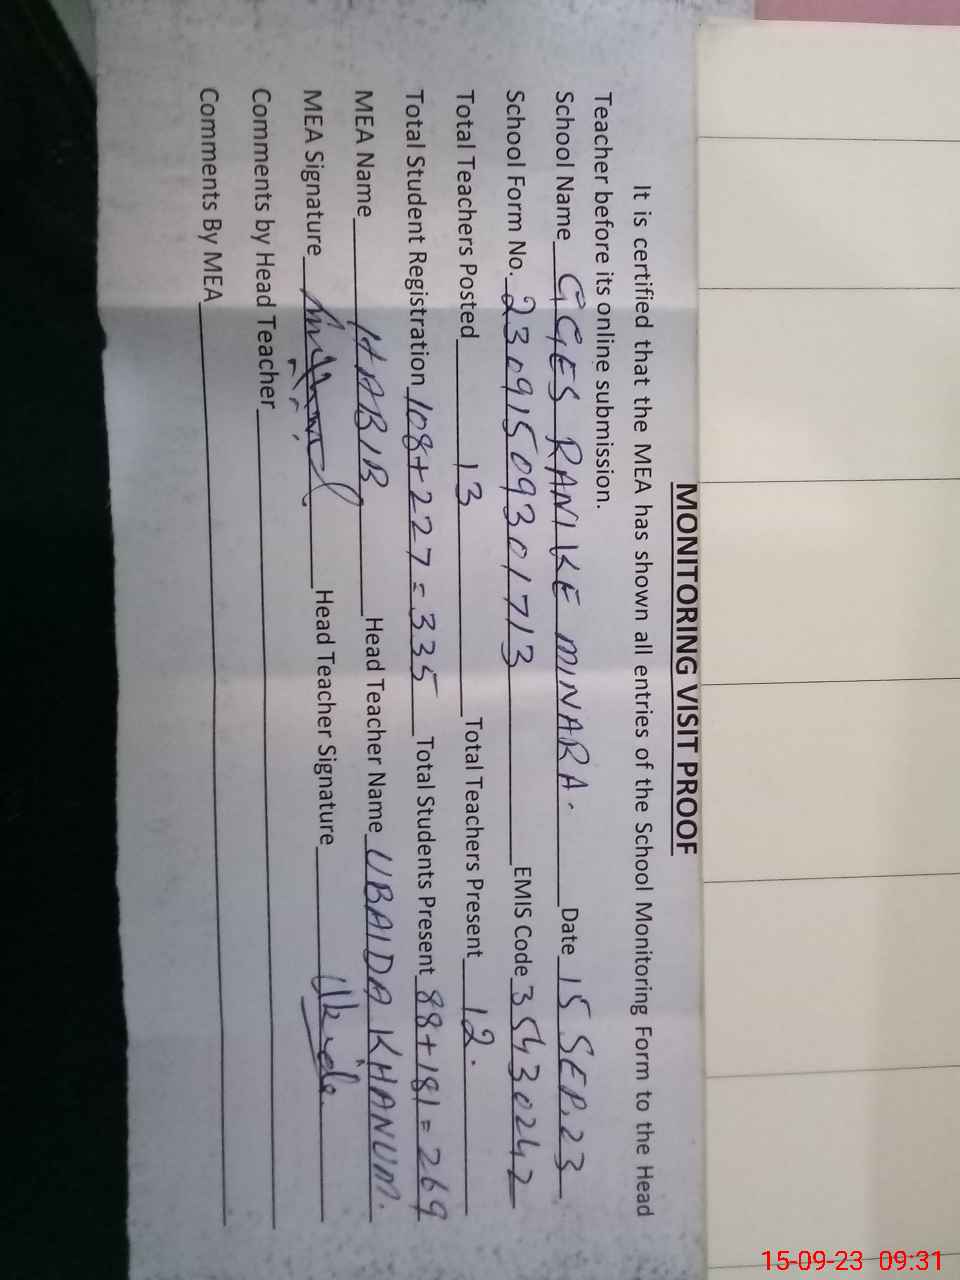 MONITORING VISIT PROOF
It is certified that the MEA has shown all entries of the School Monitoring Form to the Head
Teacher before its online submission.
School Name GGES RANIKE MINARA. Date 15 SEP. 23
School Form No. 23091509301713 EMIS Code 35430242
Total Teachers Posted 13 Total Teachers Present 12.
Total Student Registration 108+227=335 Total Students Present 88+181=269
MEA Name HABIB Head Teacher Name UBAIDA KHANUM.
MEA Signature Head Teacher Signature
Comments by Head Teacher
Comments By MEA
15-09-23 09:31